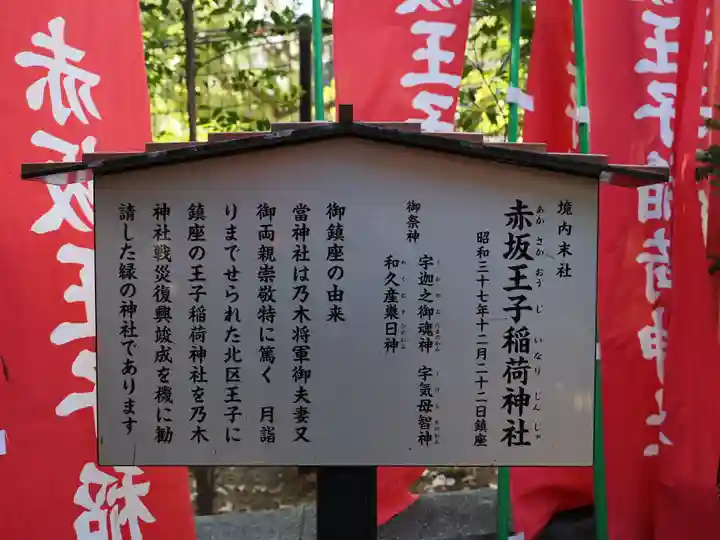 境内末社
赤坂王子稲荷神社
あかさかおうじいなりじんじゃ
昭和三十七年十二月二十二日鎮座
御祭神
宇迦之御魂神 宇気母智神
和久産巣日神
御鎮座の由来
當神社は乃木将軍御夫妻又
御両親崇敬特に篤く 月詣
りまでせられた北区王子に
鎮座の王子稲荷神社を乃木
神社戦災復興竣成を機に勧
請した縁の神社であります
赤坂王子稲荷神社
坂王子
赤坂王子稲